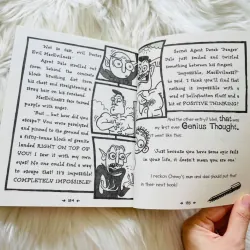 "Not so fast, evil Doctor
Evil MacEvilness!"
Agent Dan strolled out
from behind the concrete
block brushing dirt from
his chest and straightening a
stray hair on his forehead.
MacEvilness's face turned
purple with anger.
"But ... but how did you
escape? You were paralysed
and pinned to the ground and
a fifty-tonne block of granite
landed RIGHT ON TOP OF
YOU! I saw it with my own
eyes! No one could escape
that! It's impossible!
COMPLETELY IMPOSSIBLE!"
184
Secret Agent Derek 'Danger'
Dale just smiled and twirled
something between his fingers.
"Impossible, MacEvilness?"
he said. "I think you'll find that
nothing is impossible with a
wad of bellybutton fluff and a
bit of POSITIVE THINKING!"
And the other entry? Well, that was
my first ever Genius Thought.
It went like this:
'Just because you have one epic fail
in your life, it doesn't mean you are one.'
I reckon Jimmy's nan and dad should put that
in their next book!
185